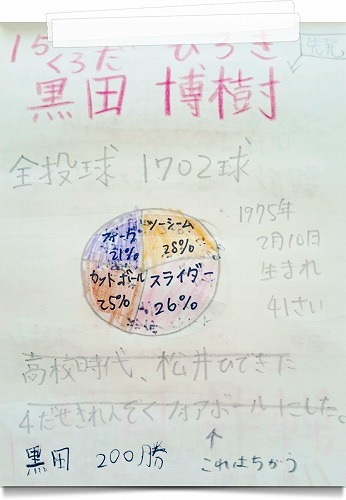 15 くろだ ひろき
先発
黒田 博樹
全投球 1702球
フォーク 21%
ツーシーム 28%
カットボール 25%
スライダー 26%
1975年
2月10日
生まれ
41さい
高校時代、松井ひできた
4だせきれんぞくフォアボールにした。
↑
これはちがう
黒田 200勝